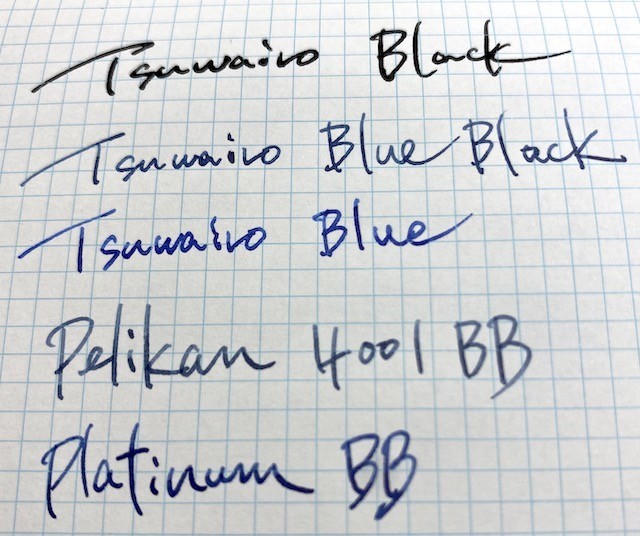 Tsuwairo Black
Tsuwairo Blue Black
Tsuwairo Blue
Pelikan 4001 BB
Platinum BB